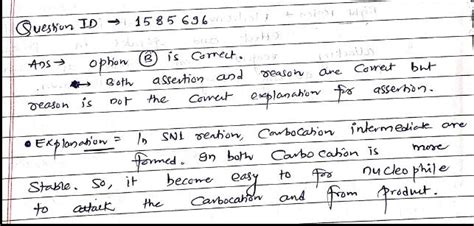 Question ID → 1585696
Ans → option (B) is Correct.
→ Both assertion and reason are Correct but
reason is not the Correct explanation for assertion.
• Explanation = In SN1 reation, Carbocation intermediate are
formed. In both Carbo cation is more
Stable. So, it become easy to for nucleophile
to attack the Carbocation and from product.